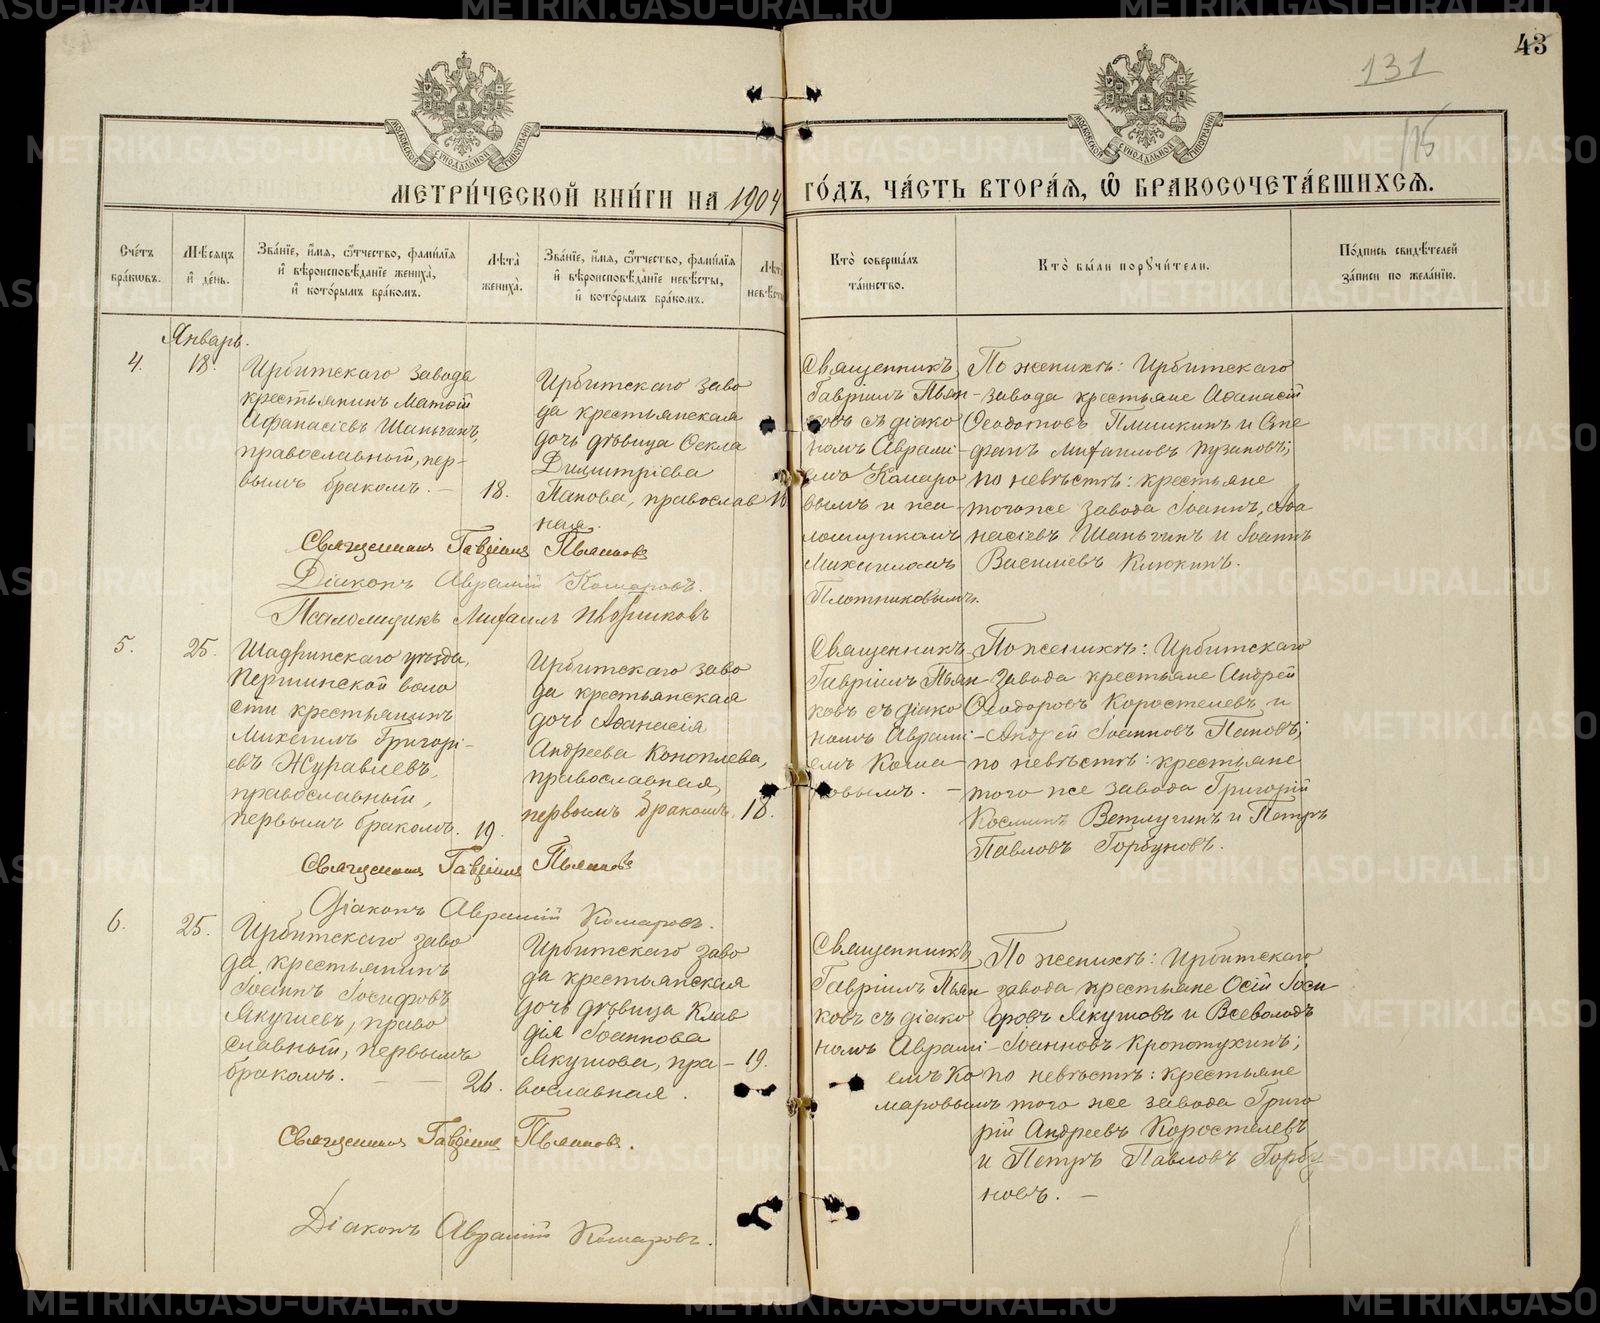 43
131
115
МЕТРИ́ЧЕСКОЙ КНИ́ГИ НА 1904 ГО́ДЪ, ЧА́СТЬ ВТОРА́Я, Ѡ҆ БРАКОСОЧЕТА́ВШИХСЯ.
Сче́тъ бра́ковъ.
Мѣ́сяцъ и҆ де́нь.
Зва́нїе, и҆́мя, ѻ҆́тчество, фами́лїя
и҆ вѣроисповѣ́данїе жениха̀,
и҆ кото́рымъ бра́комъ.
Лѣта̀ жениха̀.
Зва́нїе, и҆́мя, ѻ҆́тчество, фами́лїя
и҆ вѣроисповѣ́данїе невѣ́сты,
и҆ кото́рымъ бра́комъ.
Кто̀ соверша́лъ
та́инство.
Кто̀ бы́ли поручи́тели.
По́дпись свидѣ́телей
за́писи по жела́нїю.
Январь.
4.
18.
Ирбитскаго завода
крестьянинъ Матѳій
Афанасіевъ Шаньгинъ,
православный, пер-
вымъ бракомъ. —
18.
Ирбитскаго заво
да крестьянская
дочь дѣвица Ѳекла
Димитріева
Панова, православ
ная.
Священникъ
Гавріилъ Пьян-
ковъ съ діако
номъ Аврамі-
емъ Комаро
вымъ и пса-
ломщикомъ
Михаиломъ
Плотниковымъ.
По женихѣ: Ирбитскаго
завода крестьяне Аѳанасій
Ѳеодотовъ Пишкинъ и Сте
фанъ Михаиловъ Пузановъ;
по невѣстѣ: крестьяне
того же завода Іоаннъ Аѳа
насіевъ Шаньгинъ и Іоаннъ
Василіевъ Клюкинъ.
Священникъ Гавріилъ Пьянковъ
Діаконъ Аврамій Комаровъ.
Псаломщикъ Михаилъ Плотниковъ
5.
25.
Шадринскаго уѣзда,
Першинской воло
сти крестьянинъ
Михаилъ Григорі-
евъ Журавлевъ,
православный,
первымъ бракомъ.
19.
Ирбитскаго заво
да крестьянская
дочь Аѳанасія
Андреева Коноплева,
православная,
первымъ бракомъ.
18.
Священникъ
Гавріилъ Пьян
ковъ съ діако
номъ Аврамі-
емъ Кома-
ровымъ. —
По женихѣ: Ирбитскаго
завода крестьяне Андрей
Ѳеодоровъ Коростелевъ и
Андрей Іоанновъ Пановъ;
по невѣстѣ: крестьяне
того же завода Григорій
Космин Ветлугинъ и Петръ
Павловъ Горбуновъ.
Священникъ Гавріилъ Пьянковъ
Діаконъ Аврамій Комаровъ.
6.
25.
Ирбитскаго заво
да, крестьянинъ
Іоаннъ Іосифовъ
Якушевъ, право
славный, первымъ
бракомъ. — —
26.
Ирбитскаго заво
да крестьянская
дочь дѣвица Клав
дія Іоаннова
Якушова, пра-
вославная.
19.
Священникъ
Гавріилъ Пьян
ковъ съ діако
номъ Аврамі-
емъ Ко
маровымъ
По женихѣ: Ирбитскаго
завода крестьяне Осій Іоси
фовъ Якушовъ и Всеволодъ
Іоанновъ Кропотухинъ;
по невѣстѣ: крестьяне
того же завода Григо
рій Андреевъ Коростелевъ
и Петръ Павловъ Горбу-
новъ. —
Священникъ Гавріилъ Пьянковъ.
Діаконъ Аврамій Комаровъ.
METRIKI.GASO-URAL.RU